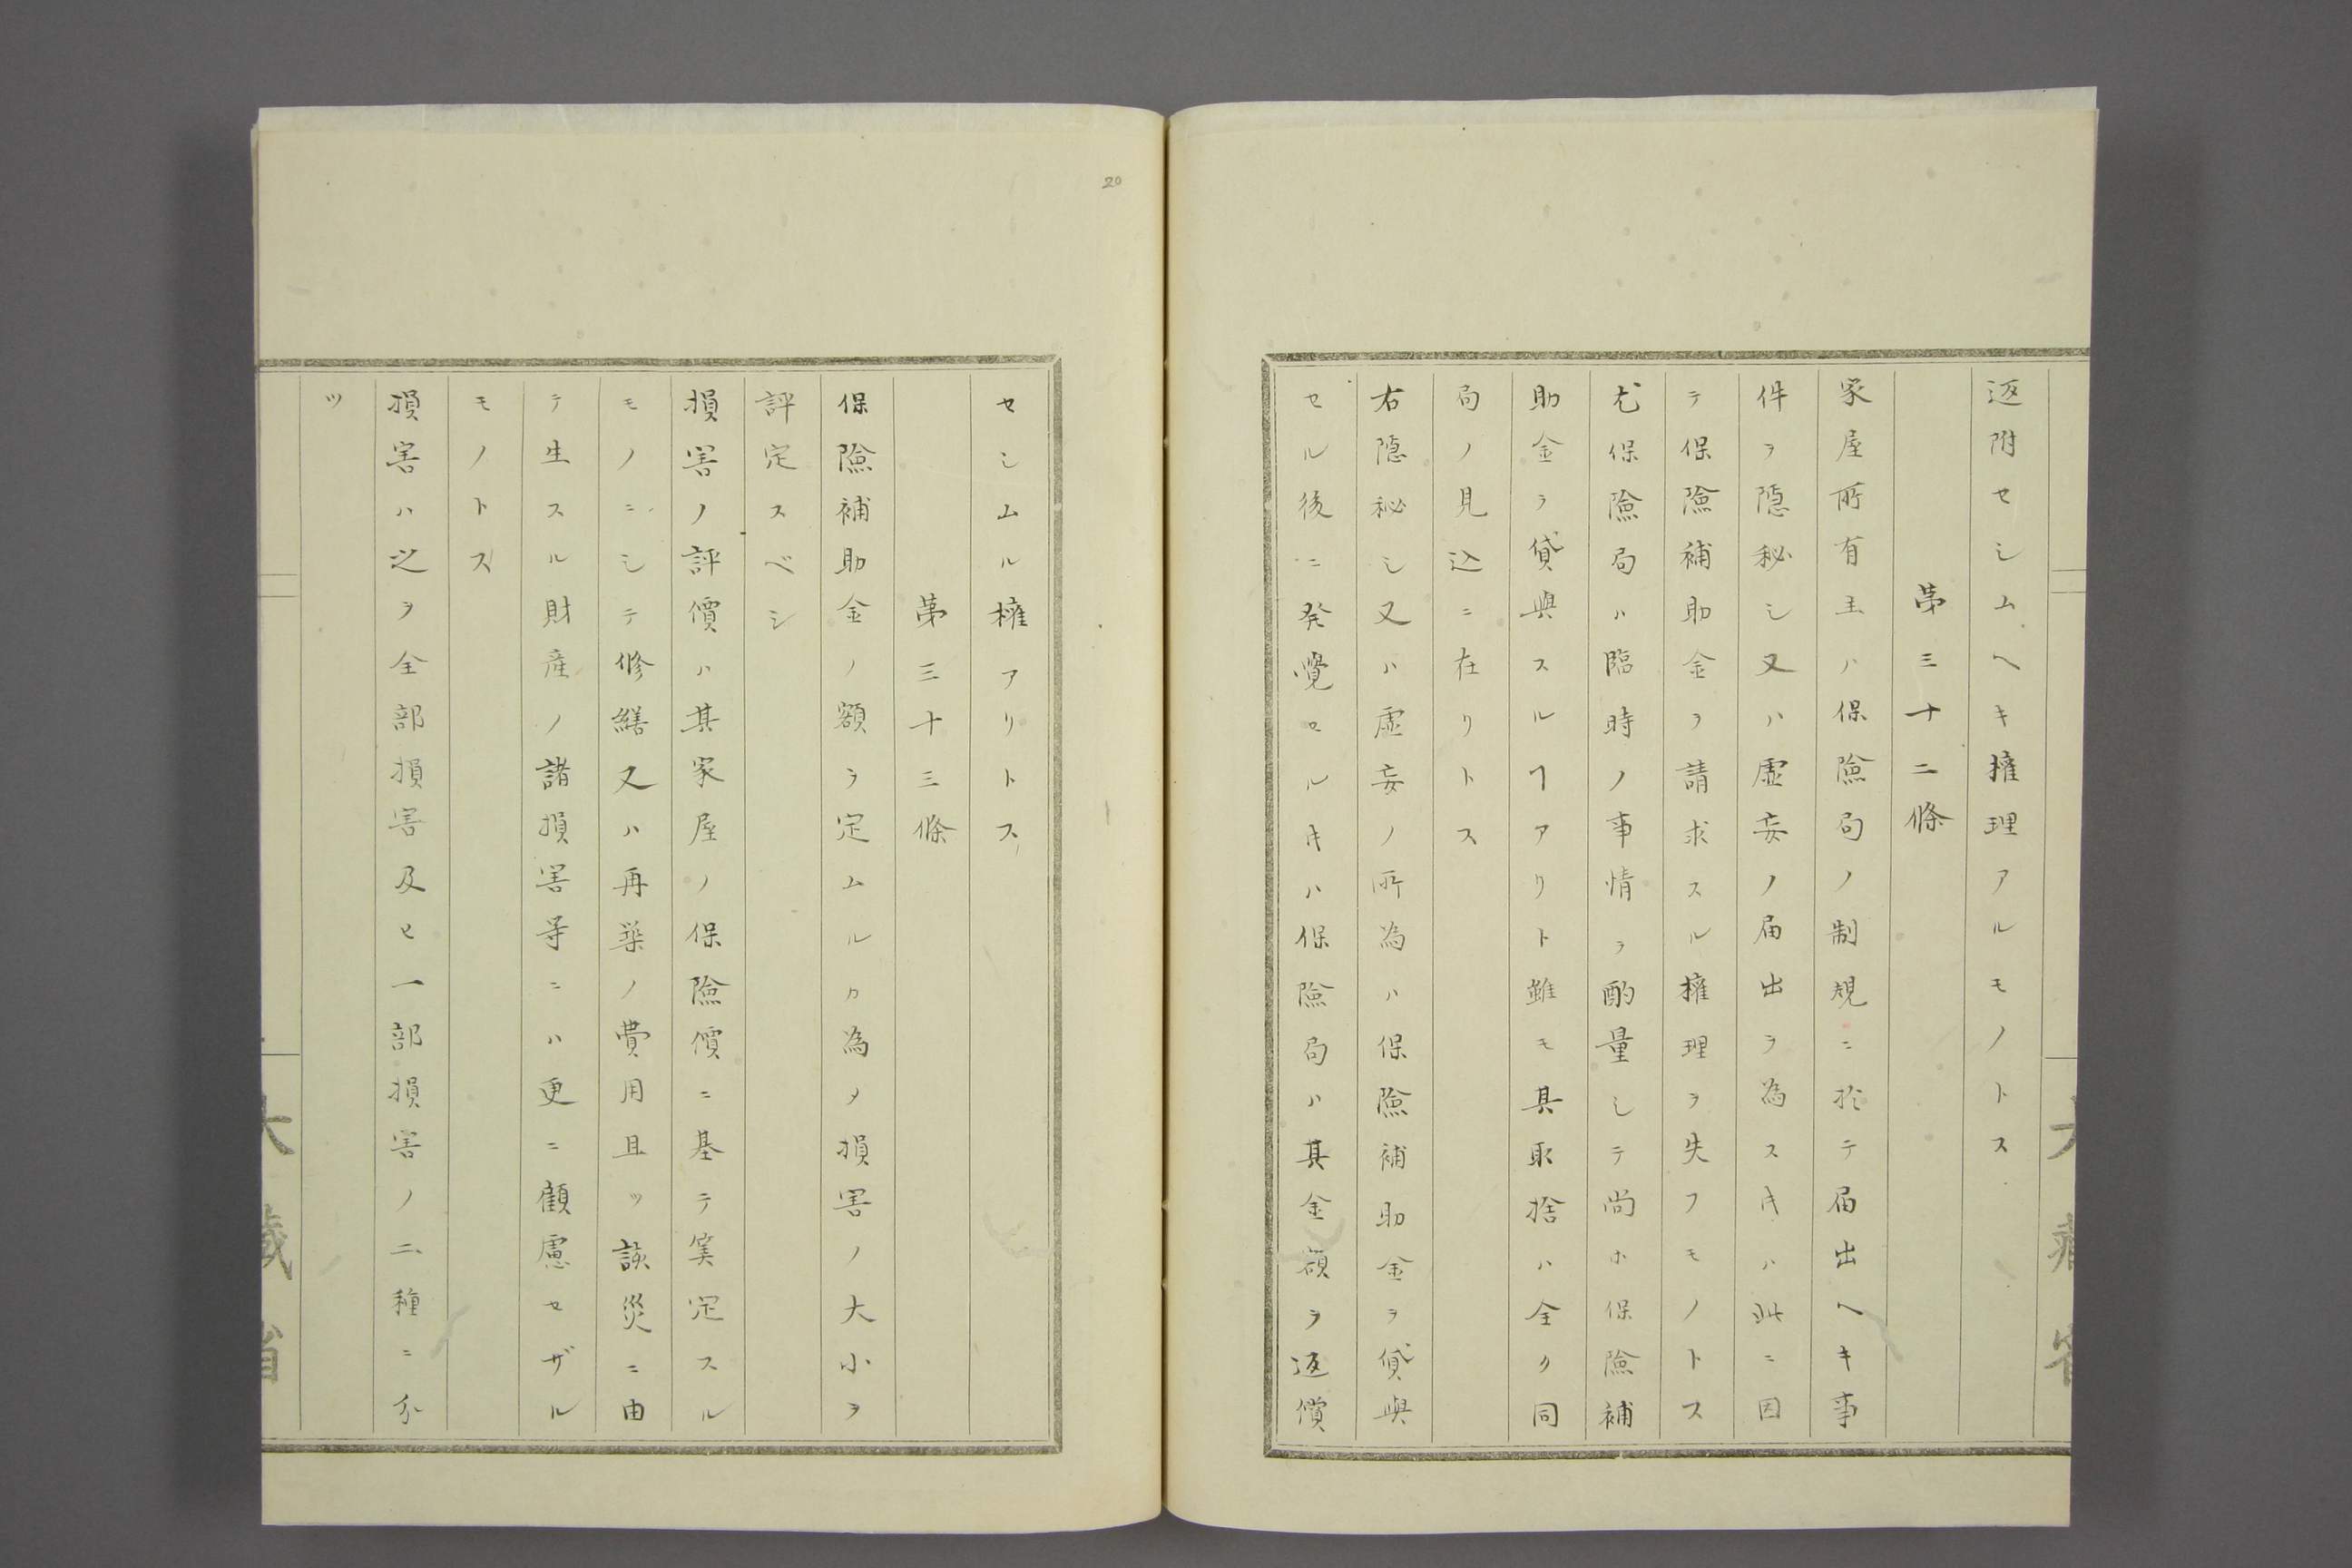 返附セシムヘキ權理アルモノトス
第三十二條
家屋所有主ハ保險局ノ制規ニ於テ届出ヘキ事
件ヲ隱秘シ又ハ虚妄ノ届出ヲ為スキハ此ニ因
テ保險補助金ヲ請求スル權理ヲ失フモノトス
尤保險局ハ臨時ノ事情ヲ酌量シテ尚ホ保險補
助金ヲ貸與スルヿアリト雖モ其取捨ハ全ク同
局ノ見込ニ在リトス
右隱秘シ又ハ虚妄ノ所為ハ保險補助金ヲ貸與
セル後ニ発覺セルキハ保險局ハ其金額ヲ返償
20
セシムル權アリトス
第三十三條
保險補助金ノ額ヲ定ムルカ為メ損害ノ大小ヲ
評定スベシ
損害ノ評價ハ其家屋ノ保險價ニ基テ筭定スル
モノニシテ修繕又ハ再築ノ費用且ツ該災ニ由
テ生スル財産ノ諸損害等ニハ更ニ顧慮セザル
モノトス
損害ハ之ヲ全部損害及ヒ一部損害ノ二種ニ分
ツ
大藏省